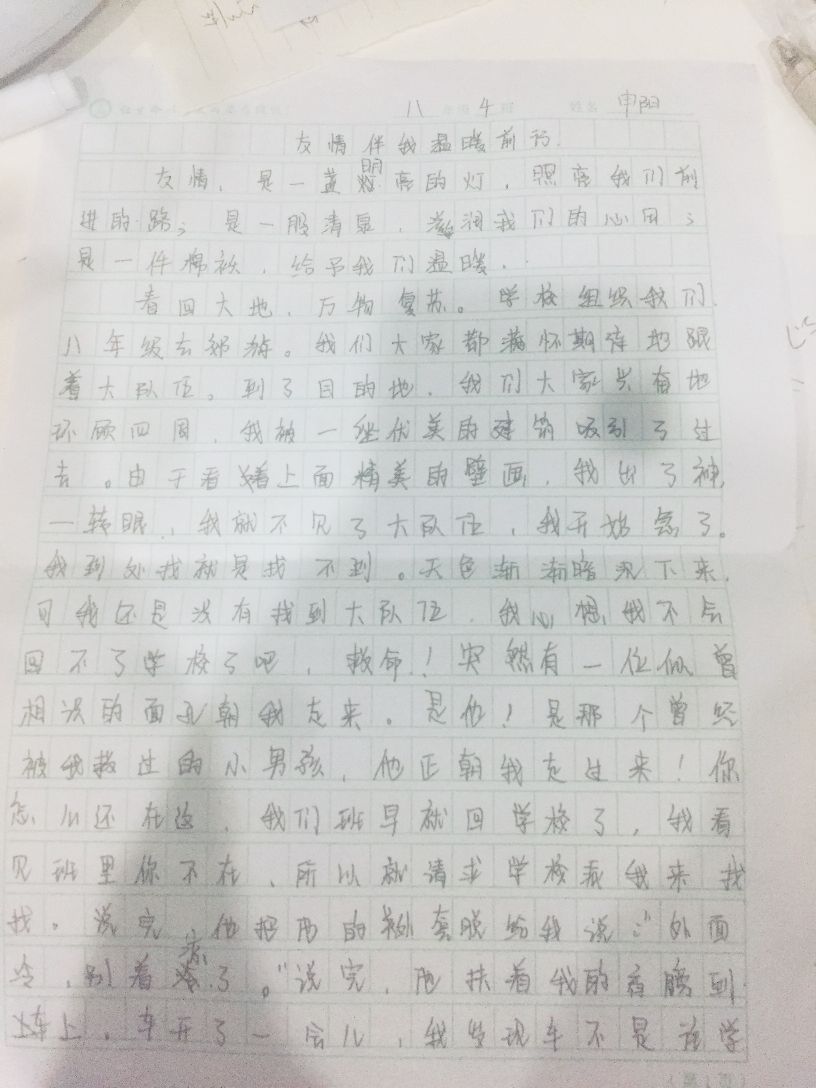 八 年级 4 班 姓名 申阳
友情伴我温暖前行.
友情，是一盏明亮的灯，照亮我们前
进的路；是一股清泉，滋润我们的心田；
是一件棉袄，给予我们温暖.
春回大地，万物复苏。学校组织我们
八年级去郊游。我们大家都满怀期待地跟
着大队伍。到了目的地，我们大家兴奋地
环顾四周，我被一座优美的建筑吸引了过
去。由于看着上面精美的壁画，我出了神，
一转眼，我就不见了大队伍，我开始急了。
我到处找就是找不到。天色渐渐暗沉下来，
可我还是没有找到大队伍，我心想，我不会
回不了学校了吧，救命！突然有一位似曾
相识的面孔朝我走来。是他！是那个曾经
被我救过的小男孩，他正朝我走过来！你
怎么还在这，我们班早就回学校了，我看
见班里你不在，所以就请求学校我来找
找。说完，他把的外套脱给我说：“外面
冷，别着凉了。”说完，他扶着我的肩膀到
车上，车开了一会儿，我发现车不是往学